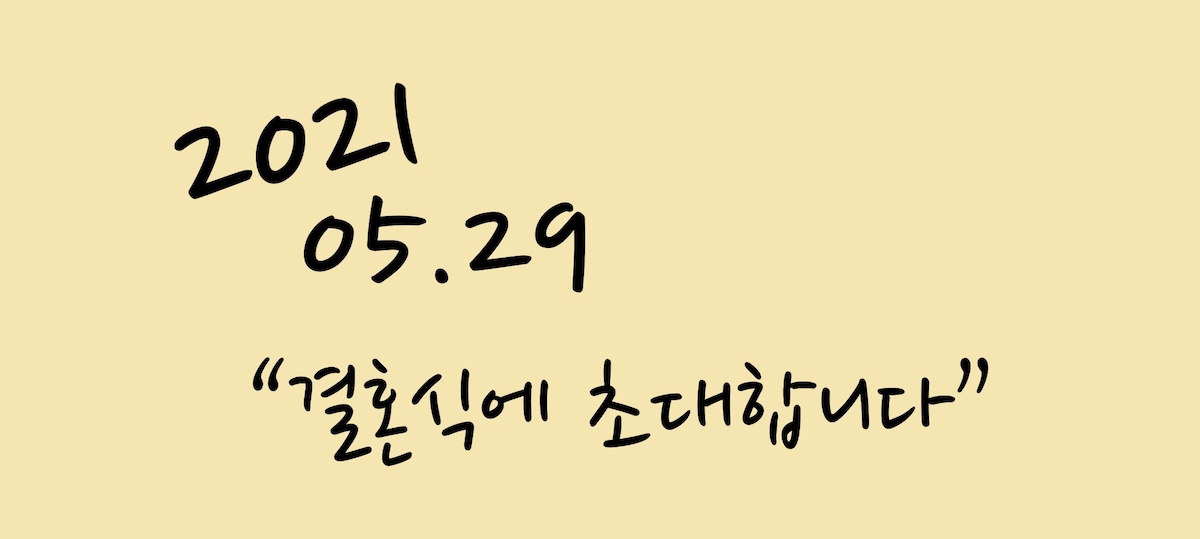 2021
05.29
“결혼식에 초대합니다”